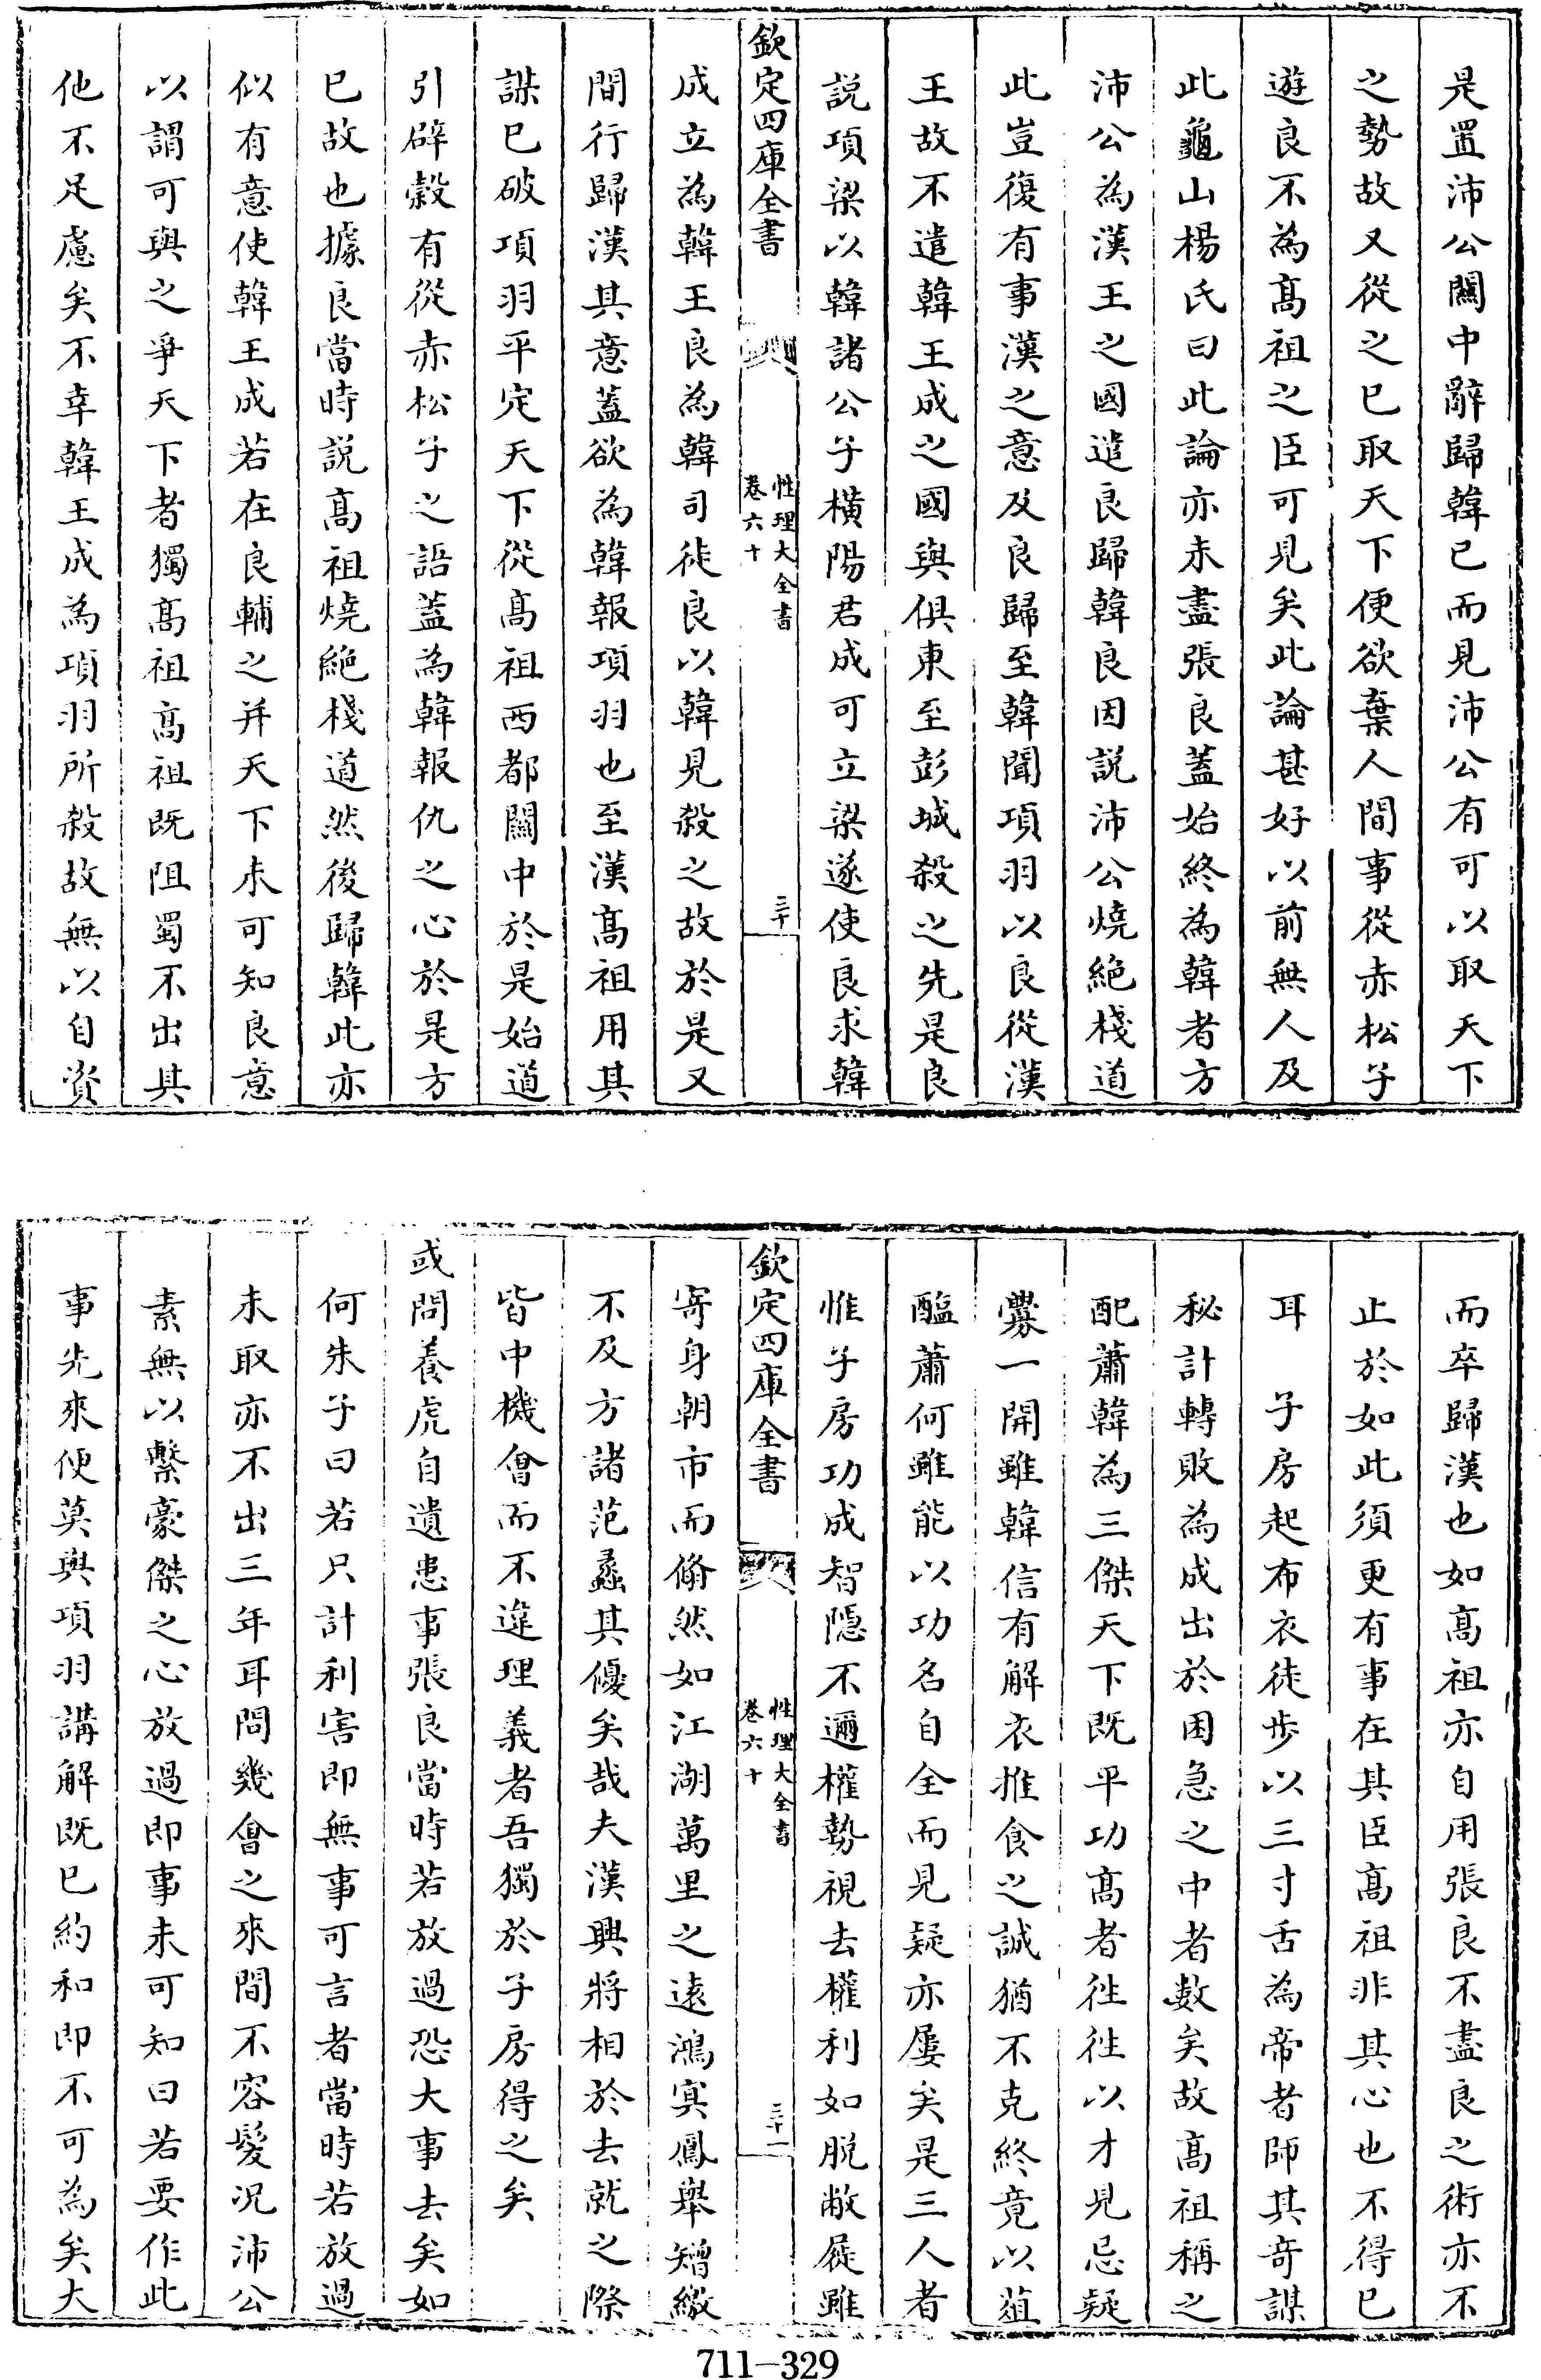 是置沛公關中辭歸韓已而見沛公有可以取天下
之勢故又從之已取天下便欲棄人間事從赤松子
遊良不為髙祖之臣可見矣此論甚好以前無人及
此龜山楊氏曰此論亦未盡張良蓋始終為韓者方
沛公為漢王之國遣良歸韓良因説沛公燒絶棧道
此豈復有事漢之意及良歸至韓聞項羽以良從漢
王故不遣韓王成之國與俱東至彭城殺之先是良
説項梁以韓諸公子橫陽君成可立梁遂使良求韓
欽定四庫全書
性理大全書
卷六十
三十
成立為韓王良為韓司徒良以韓見殺之故於是又
間行歸漢其意蓋欲為韓報項羽也至漢髙祖用其
謀已破項羽平定天下從髙祖西都關中於是始道
引辟穀有從赤松子之語蓋為韓報仇之心於是方
已故也據良當時説髙祖燒絶棧道然後歸韓此亦
似有意使韓王成若在良輔之并天下未可知良意
以謂可與之爭天下者獨髙祖髙祖既阻蜀不出其
他不足慮矣不幸韓王成為項羽所殺故無以自資
而卒歸漢也如髙祖亦自用張良不盡良之術亦不
止於如此須更有事在其臣髙祖非其心也不得已
耳 子房起布衣徒步以三寸舌為帝者師其奇謀
秘計轉敗為成出於困急之中者數矣故髙祖稱之
配蕭韓為三傑天下既平功髙者徃徃以才見忌疑
釁一開雖韓信有解衣推食之誠猶不克終竟以葅
醢蕭何雖能以功名自全而見疑亦屢矣是三人者
惟子房功成智隱不邇權勢視去權利如脱敝屣雖
欽定四庫全書
性理大全書
卷六十
三十一
寄身朝市而翛然如江湖萬里之遠鴻㝠鳳舉矰繳
不及方諸范蠡其優矣哉夫漢興將相於去就之際
皆中機㑹而不違理義者吾獨於子房得之矣
或問養虎自遺患事張良當時若放過恐大事去矣如
何朱子曰若只計利害即無事可言者當時若放過
未取亦不出三年耳問幾㑹之來間不容髮况沛公
素無以繫豪傑之心放過即事未可知曰若要作此
事先來便莫與項羽講解既已約和即不可為矣大
711—329